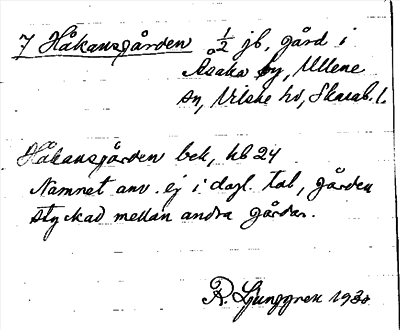 7 Håkansgården 1/2 jb, gård i
Åsaka by, Ullene
sn, Vilske hd, Skarab. l.
Håkansgården bek, hb 24
Namnet anv. ej i dagl. tal, gården
styckad mellan andra gårdar.
R. Ljunggren 1930